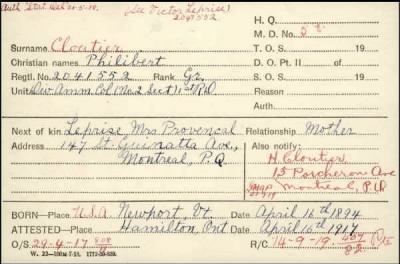 Auth Stat. Decl 21-5-19. (See Victor Leprise)
2041552
H. Q.
M. D. No.
Surname Cloutier
T. O. S. 19
Christian names Philibert
D. O. Pt. II of 19
Regtl. No. 2041552 Rank Gr.
S. O. S. 19
Unit Div. Amm. Col (No 2 Sect) 1st R.D.
Reason
Auth.
Next of kin Leprise, Mrs Provencal Relationship Mother
Address 147 St. Ave., Also notify:
Montreal, P.Q. H. Cloutier,
15 Porcheron Ave
Montreal, P.Q
BORN—Place U.S.A. Newport, Vt. Date April 16th 1894
ATTESTED—Place Hamilton, Ont Date April 16th 1917
O/S 29-4-17 R/C 14-9-19
W. 22—100M. 7-18. 1772-39-839.